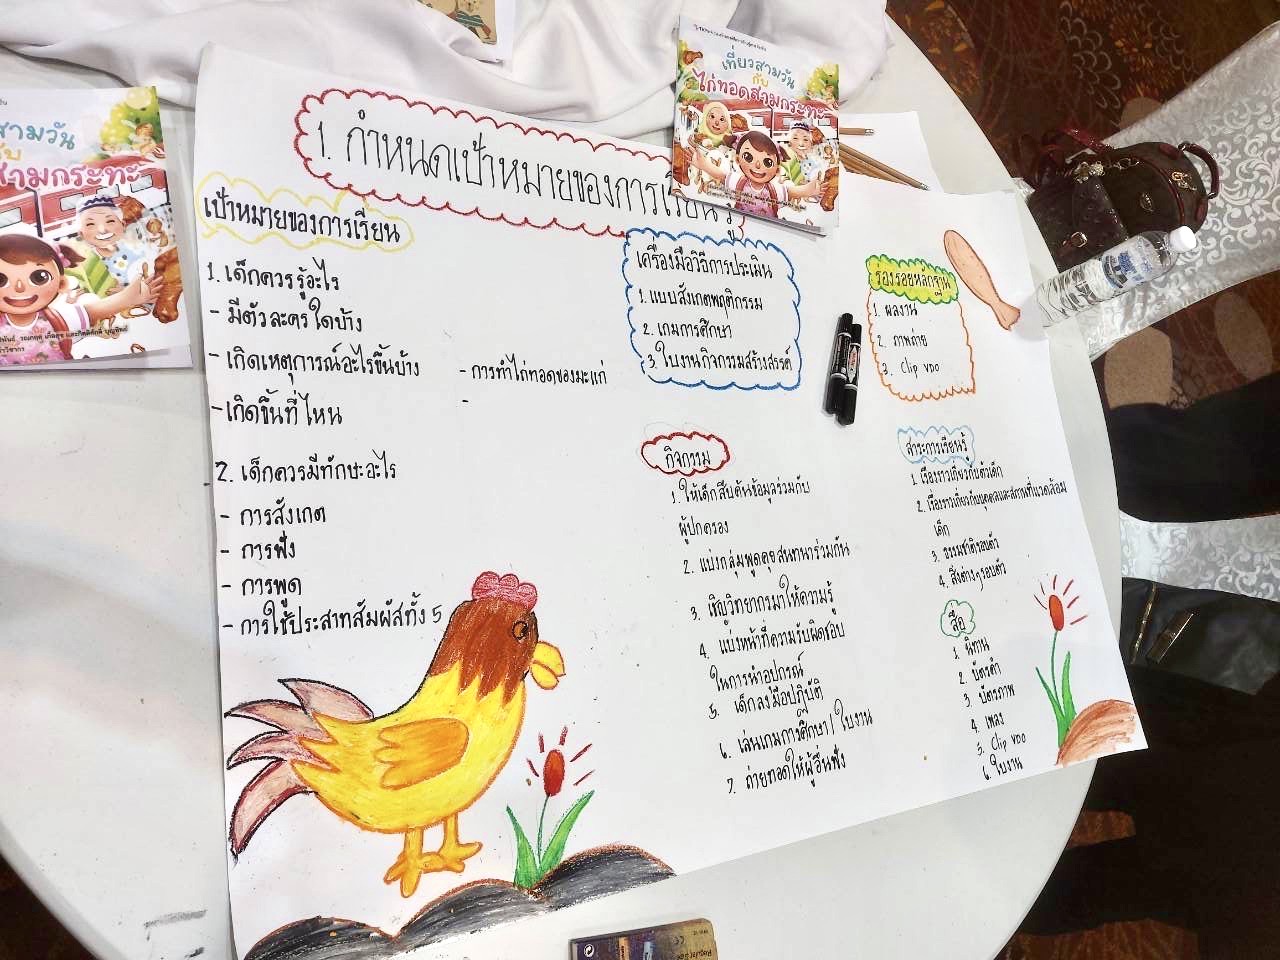 1. กำหนดเป้าหมายของการเรียนรู้
เป้าหมายของการเรียน
1. เด็กควรรู้อะไร
- มีตัวละครใดบ้าง
- เกิดเหตุการณ์อะไรขึ้นบ้าง
- การทำไก่ทอดของมะแก่
-
- เกิดขึ้นที่ไหน
2. เด็กควรมีทักษะอะไร
- การสังเกต
- การฟัง
- การพูด
- การใช้ประสาทสัมผัสทั้ง 5
เครื่องมือวิธีการประเมิน
1. แบบสังเกตพฤติกรรม
2. เกมการศึกษา
3. ใบงานกิจกรรมสร้างสรรค์
ร่องรอยหลักฐาน
1. ผลงาน
2. ภาพถ่าย
3. Clip VDO
กิจกรรม
1. ให้เด็กสืบค้นข้อมูลร่วมกับ
ผู้ปกครอง
2. แบ่งกลุ่มพูดคุยสนทนาร่วมกัน
3. เชิญวิทยากรมาให้ความรู้
4. แบ่งหน้าที่ความรับผิดชอบ
ในการนำอุปกรณ์
5. เด็กลงมือปฏิบัติ
6. เล่นเกมการศึกษา / ใบงาน
7. ถ่ายทอดให้ผู้อื่นฟัง
สาระการเรียนรู้
1. เรื่องราวเกี่ยวกับตัวเด็ก
2. เรื่องราวเกี่ยวกับบุคคลและสถานที่แวดล้อม
เด็ก
3. ธรรมชาติรอบตัว
4. สิ่งต่างๆรอบตัว
สื่อ
1. นิทาน
2. บัตรคำ
3. บัตรภาพ
4. เพลง
5. Clip VDO
6. ใบงาน
เที่ยวสามวัน
กับ
ไก่ทอดสามกระทะ
สามวัน
กับ
สามกระทะ